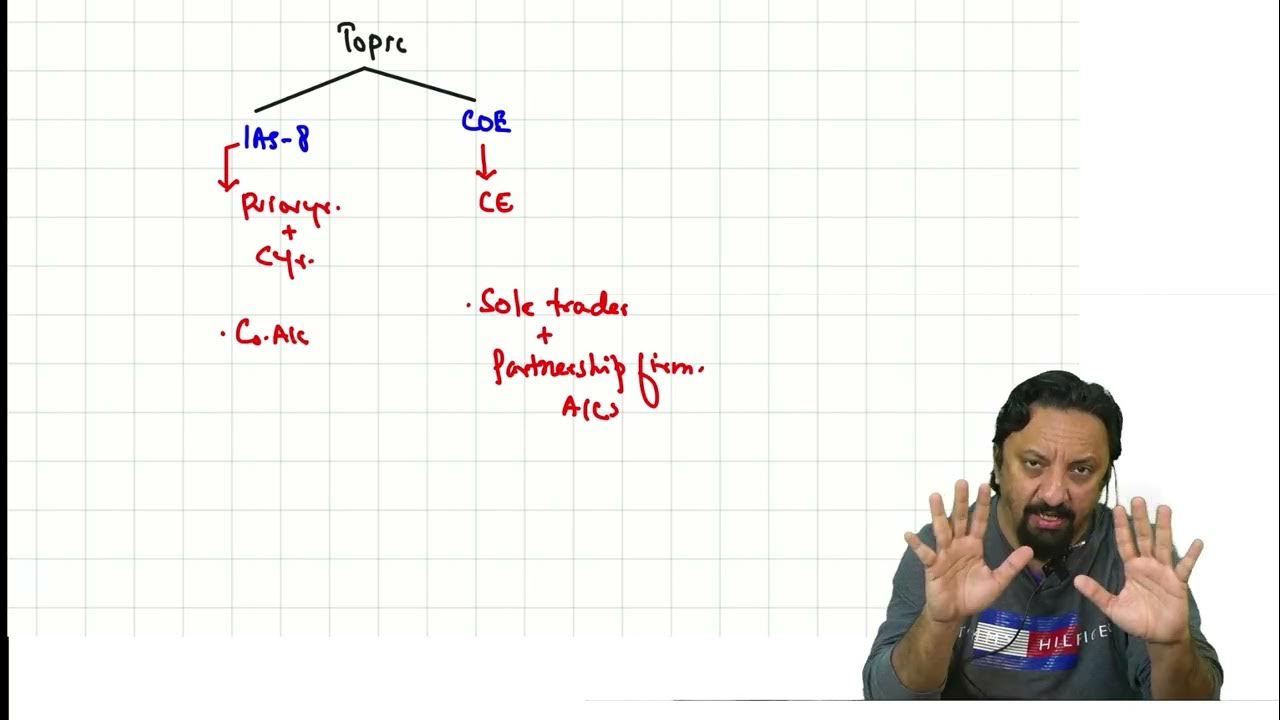 Topic
IAS-8
COE
Prior yr.
+
C yr.
CE
. Co. A/c
. Sole trader
+
Partnership firm.
A/Cs
HILFIGER